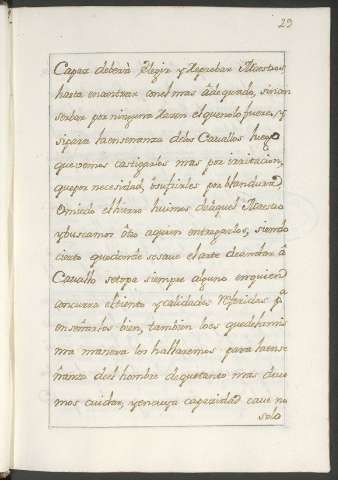 29
Capaz deberà Elegir y Reprobar Maestros
hasta encontrar con el mas adequado, sin con
serbar por ninguna Razon el que no lo fuere, y
si para la enseñanza de los Cavallos luego
que vemos castigarlos mas por irritacion,
que por necesidad, ò sufrirles por blandura
ò miedo el hierro huimos de aquel Maestro
y buscamos òtro aquien entregarlos, siendo
cierto que donde se save el arte de andar à
Cavallo se topa siempre alguno en quien
concurra el tiento y calidades referidas pª
enseñarlos bien, tambien loes que de la mis
ma manera los hallaremos para la ense
ñanza del hombre de que tanto mas deve
mos cuidar, y en cuya capazidad cave no
solo